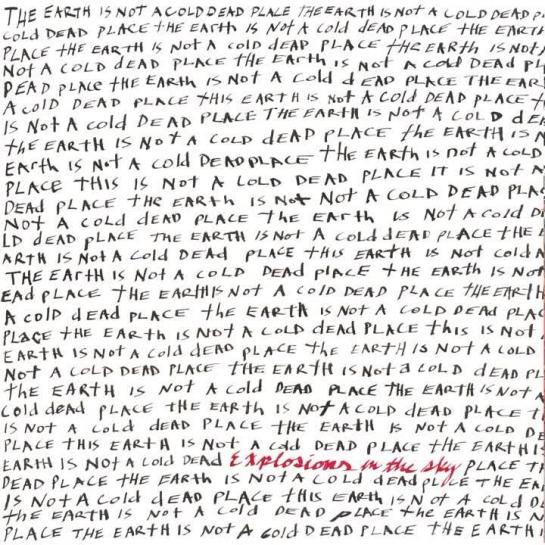 THE EARTH IS NOT A COLD DEAD PLACE THE EARTH IS NOT A COLD DEAD P
COLD DEAD PLACE THE EARTH IS NOT A COLD DEAD PLACE THE EARTH
PLACE THE EARTH IS NOT A COLD DEAD PLACE THE EARTH IS NOT
NOT A COLD DEAD PLACE THE EARTH IS NOT A COLD DEAD PL
DEAD PLACE THE EARTH IS NOT A COLD DEAD PLACE THE EAR
A COLD DEAD PLACE THIS EARTH IS NOT A COLD DEAD PLACE T
IS NOT A COLD DEAD PLACE THE EARTH IS NOT A COLD DEA
THE EARTH IS NOT A COLD DEAD PLACE THE EARTH IS N
EARTH IS NOT A COLD DEAD PLACE THE EARTH IS NOT A COLD
PLACE THIS IS NOT A COLD DEAD PLACE IT IS NOT A
DEAD PLACE THE EARTH IS NOT NOT A COLD DEAD PLAC
NOT A COLD DEAD PLACE THE EARTH IS NOT A COLD D
LD DEAD PLACE THE EARTH IS NOT A COLD DEAD PLACE THE E
ARTH IS NOT A COLD DEAD PLACE THIS EARTH IS NOT COLD A
THE EARTH IS NOT A COLD DEAD PLACE THE EARTH IS NOT
EAD PLACE THE EARTH IS NOT A COLD DEAD PLACE THE EARTH
A COLD DEAD PLACE THE EARTH IS NOT A COLD DEAD PLAC
PLACE THE EARTH IS NOT A COLD DEAD PLACE THIS IS NOT
EARTH IS NOT A COLD DEAD PLACE THE EARTH IS NOT A COLD
NOT A COLD DEAD PLACE THE EARTH IS NOT A COLD DEAD PL
THE EARTH IS NOT A COLD DEAD PLACE THE EARTH IS NOT A
COLD DEAD PLACE THE EARTH IS NOT A COLD DEAD PLACE T
IS NOT A COLD DEAD PLACE THE EARTH IS NOT A COLD DE
PLACE THIS EARTH IS NOT A COLD DEAD PLACE THE EARTH IS
EARTH IS NOT A COLD DEAD Explosions in the sky PLACE TH
DEAD PLACE THE EARTH IS NOT A COLD DEAD PLACE THE EA
IS NOT A COLD DEAD PLACE THIS EARTH IS NOT A COLD D
THE EARTH IS NOT A COLD DEAD PLACE THE EARTH IS N
PLACE THE EARTH IS NOT A COLD DEAD PLACE THE EARTH